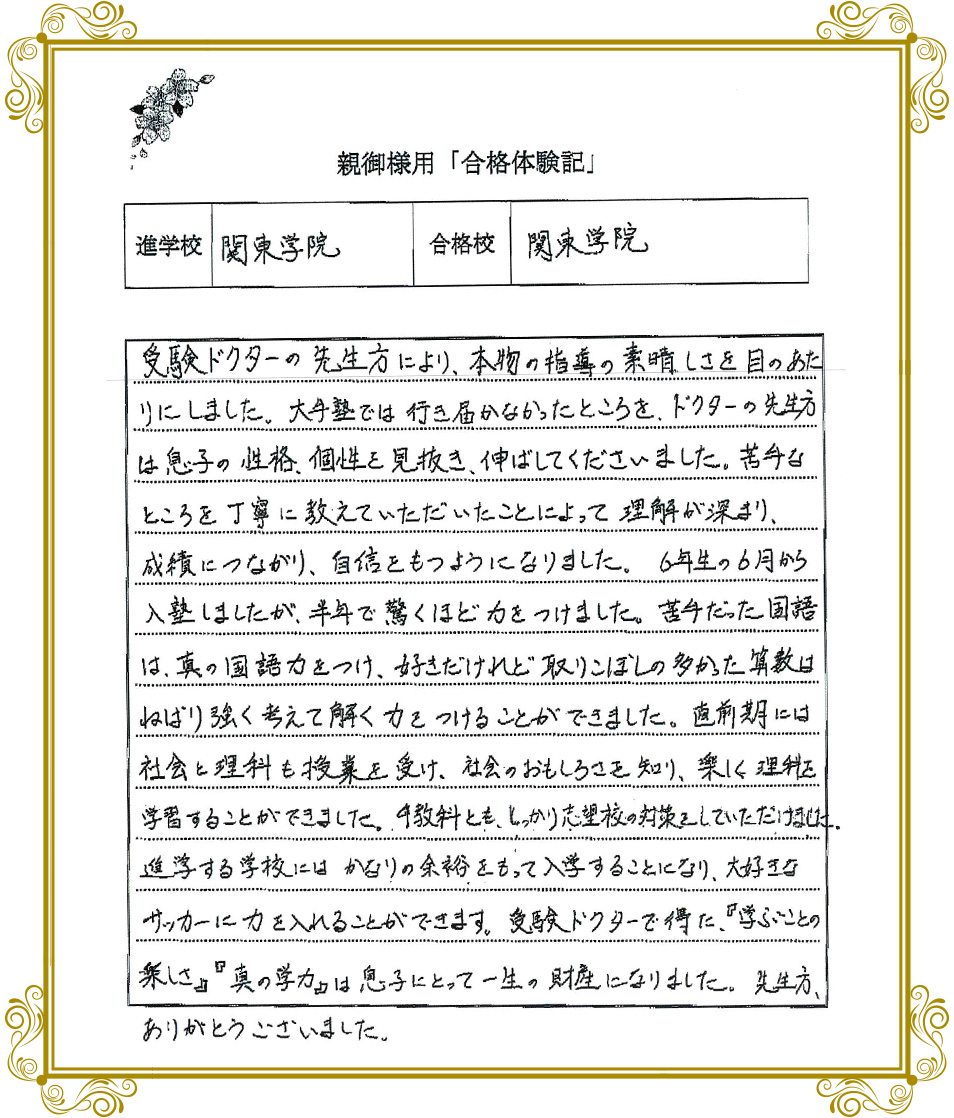 親御様用「合格体験記」
進学校 関東学院 合格校 関東学院
受験ドクターの先生方により、本物の指導の素晴しさを目のあた
りにしました。大手塾では行き届かなかったところを、ドクターの先生方
は息子の性格、個性を見抜き、伸ばしてくださいました。苦手な
ところを丁寧に教えていただいたことによって理解が深まり、
成績につながり、自信をもつようになりました。6年生の6月から
入塾しましたが、半年で驚くほど力をつけました。苦手だった国語
は、真の国語力をつけ、好きだけれど取りこぼしの多かった算数は
ねばり強く考えて解く力をつけることができました。直前期には
社会と理科も授業を受け、社会のおもしろさを知り、楽しく理科を
学習することができました。4教科とも、しっかり志望校の対策をしていただけました。
進学する学校にはかなりの余裕をもって入学することになり、大好きな
サッカーに力を入れることができます。受験ドクターで得た、『学ぶことの
楽しさ』『真の学力』は息子にとって一生の財産になりました。先生方、
ありがとうございました。